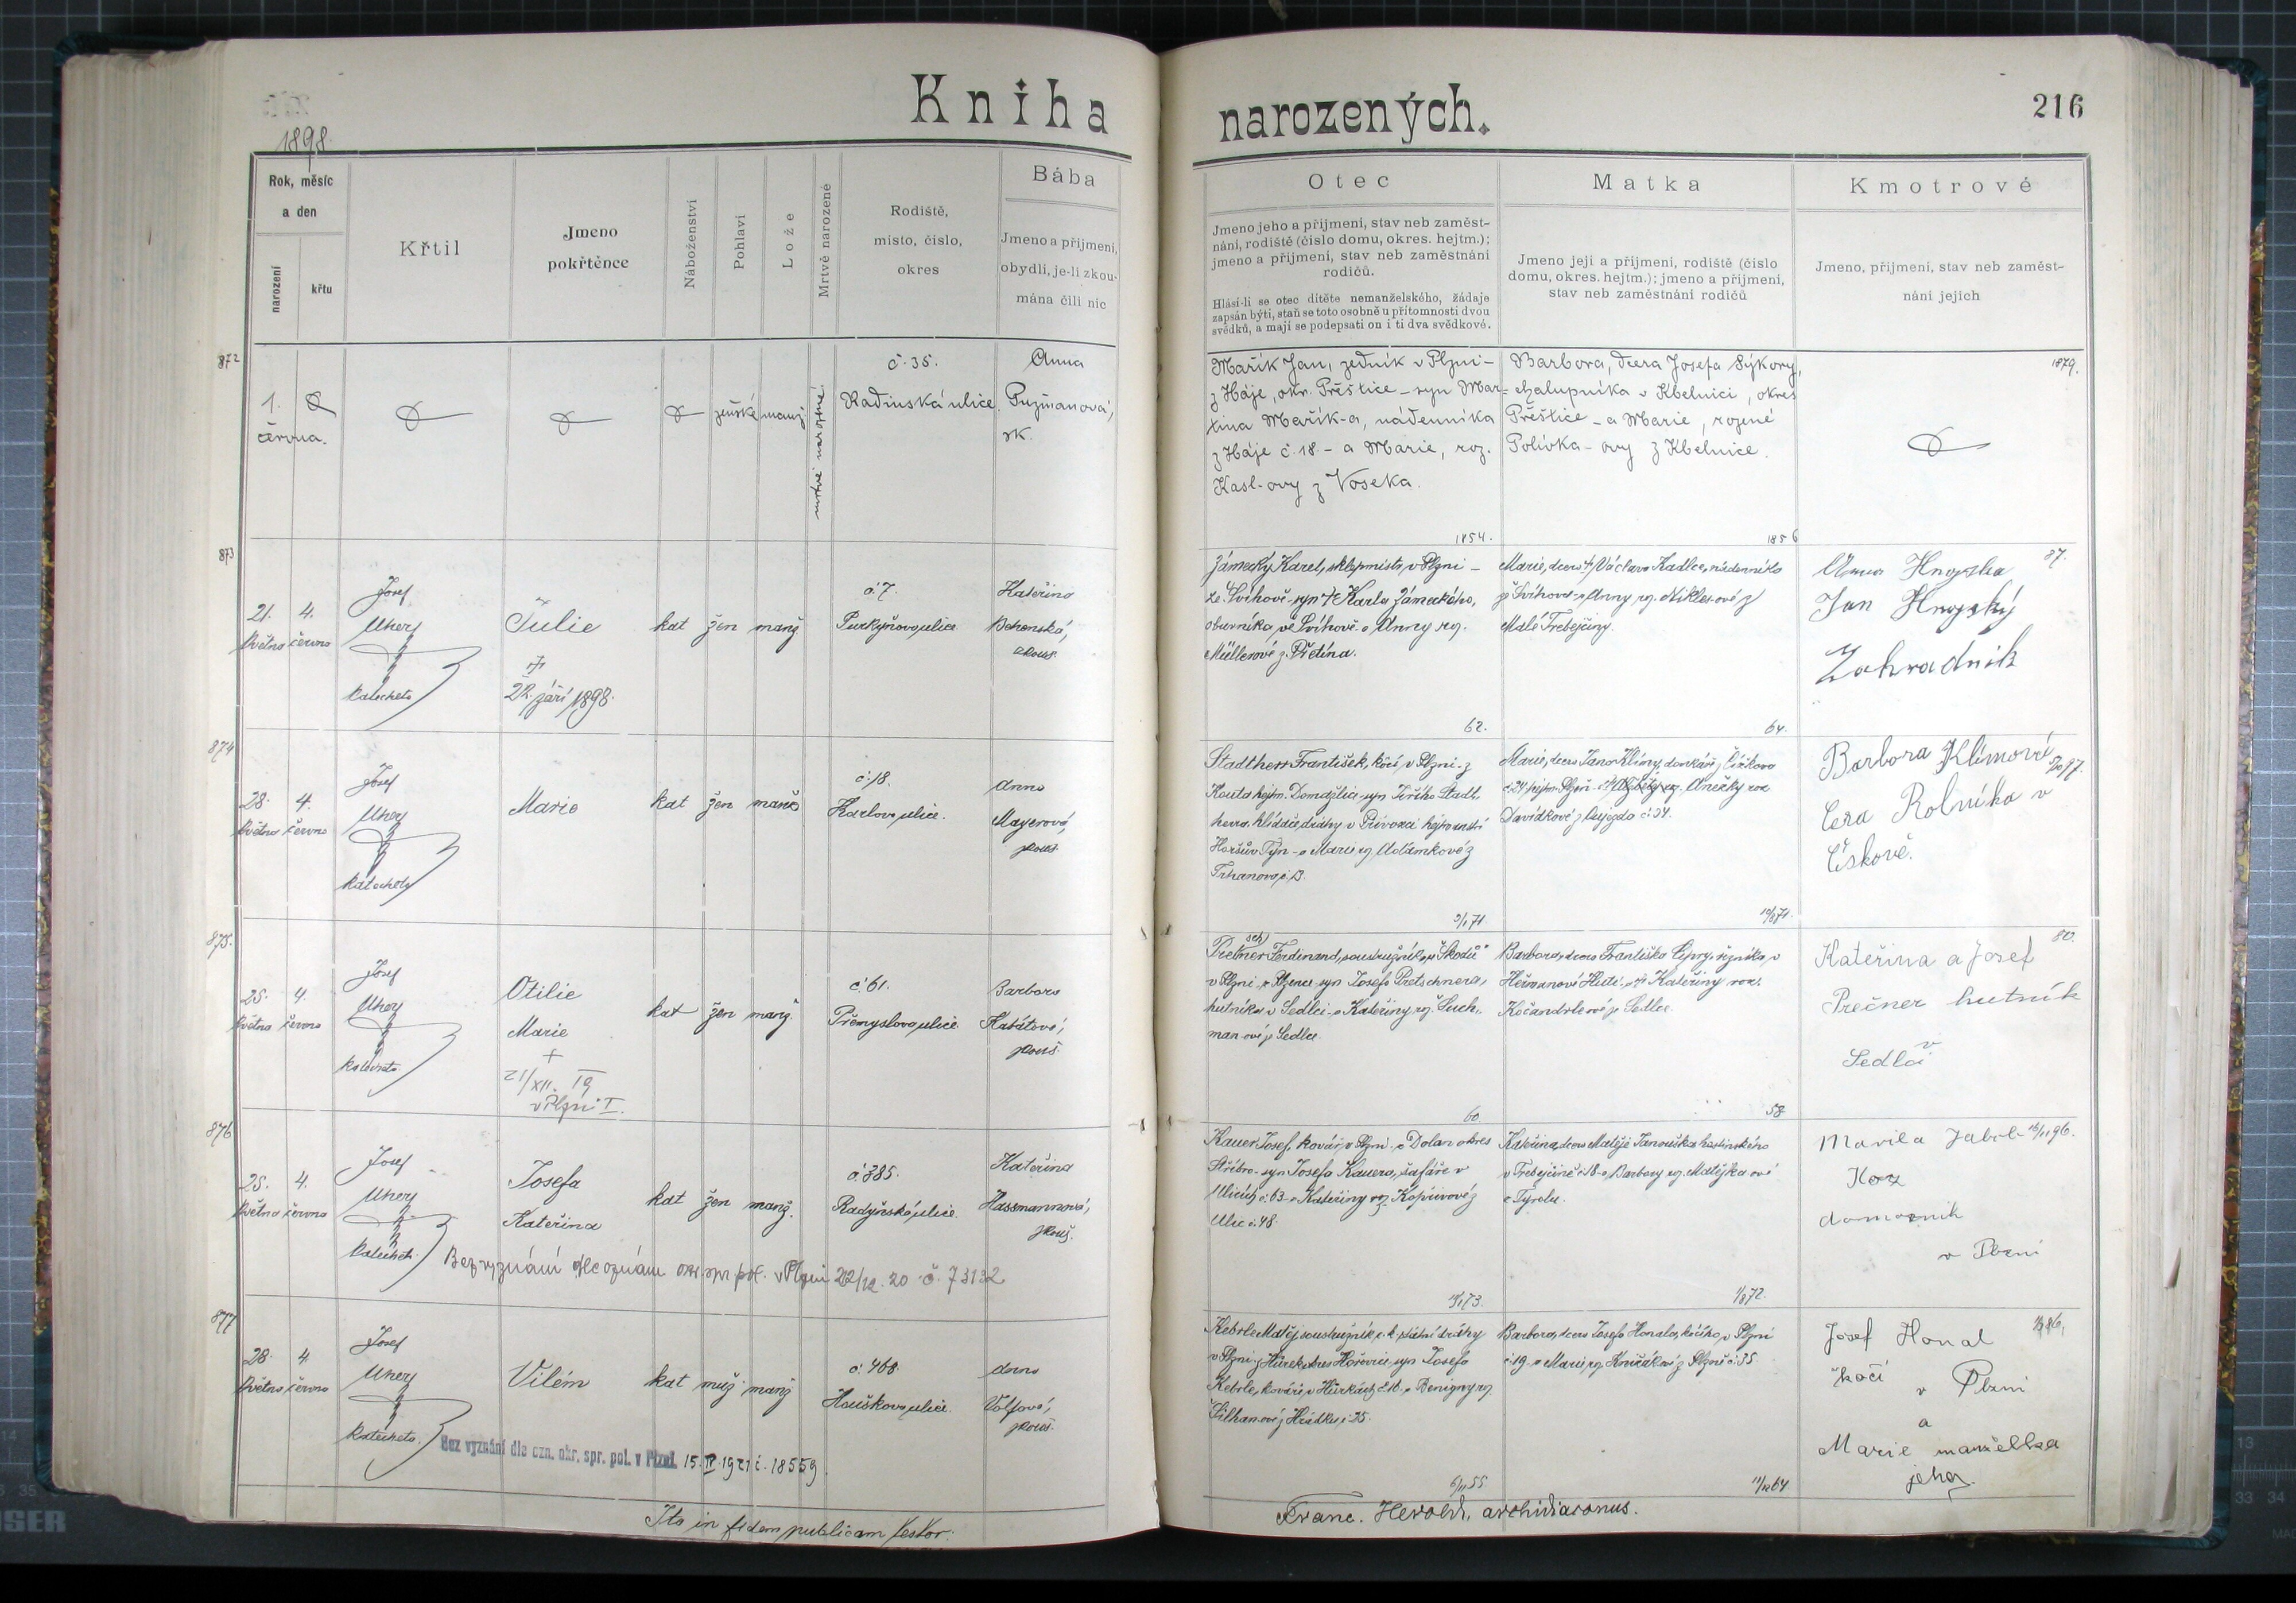 Kniha
narozených.
216
1898.
Rok, měsíc
a den
narození
křtu
Křtil
Jmeno
pokřtěnce
Náboženství
Pohlaví
Lože
Mrtvě narozené
Rodiště,
místo, číslo,
okres
Bába
Jmeno a příjmení,
obydlí, je-li zkou-
mána čili nic
Otec
Jmeno jeho a příjmení, stav neb zaměst-
nání, rodiště (číslo domu, okres. hejtm.);
jmeno a příjmení, stav neb zaměstnání
rodičů.
Hlásí-li se otec dítěte nemanželského, žádaje
zapsán býti, staň se toto osobně u přítomnosti dvou
svědků, a mají se podepsati on i ti dva svědkové.
Matka
Jmeno její a příjmení, rodiště (číslo
domu, okres. hejtm.); jmeno a příjmení,
stav neb zaměstnání rodičů
Kmotrové
Jmeno, příjmení, stav neb zaměst-
nání jejich
872
1.
června.
ženské manž.
mrtvě narozené
č. 35.
Radinská ulice
Anna
Puzmanová,
zk.
Mařík Jan, zedník v Plzni –
z Háje, okr. Přeštice – syn Mar-
tina Mařík-a, nádenníka
z Háje č. 18. – a Marie, roz.
Kasl-ovy z Voseka.
1854.
Barbora, dcera Josefa Sýkory,
chalupníka v Kbelnici, okres
Přeštice – a Marie, rozené
Polívka-ovy z Kbelnice.
1856
1879.
873
21. 4.
května června
Josef
Uhery
katecheta
Julie
†
22. září 1898.
kat žen manž
č. 7.
Purkyňova ulice
Kateřina
Behenská,
zkouš.
Zámecký Karel, sklepmistr v Plzni –
ze Švihova – syn † Karla Zámeckého,
obuvníka ve Švihově – a Anny roz.
Müllerové z Přetína.
62.
Marie, dcera † Václava Kadlce, nádenníka
ze Švihova – a Anny roz. Nikles-ové z
Malé Třebejčiny.
64.
Anna
Jan
Zahradník
87.
874
28. 4.
května června
Josef
Uhery
katecheta
Marie
kat žen manž
č. 18.
Karlova ulice.
Anna
Mayerová,
zkouš.
Stadtherr František, kočí v Plzni – z
Kouta hejtm. Domažlice – syn Jiřího Stadt-
herra, hlídače dráhy v Přívozci hejtmanství
Horšův Týn – a Marie roz. Adámkové z
Trhanova č. 13.
9/1 71.
Marie, dcera Jana Klímy, domkáře z Číčkova
č. 24 hejtm. Plzeň – a Anežky roz.
Davídkové z
Barbora Klímová
Cera Rolníka v
875.
25. 4.
května června
Josef
Uhery
katecheta
Otilie
Marie
+
21/XII. 19
v Plzni I.
kat žen manž.
č. 61.
Přemyslova ulice
Barbora
Habátová,
zkouš.
Pretschner Ferdinand, soustružník u „Škodů“
v Plzni z Plzence syn Josefa Pretschnera,
hutníka v Sedlci – a Kateřiny roz. Such-
man-ové z Sedlce.
60
Barbora, dcera Františka Čepry, řezníka v
Heřmanově Huti – a † Kateřiny roz.
Kočandrle-ové z Sedlce.
58
Kateřina a Josef
Prečner hutník
v
Sedlci
80.
876
25. 4.
května června
Josef
Uhery
katecheta
Josefa
Kateřina
kat žen manž.
č. 385.
Radyňská ulice
Kateřina
Hassmannová,
zkouš.
Bez vyznání dle oznám. okr. spr. pol. v Plzni 22/12. 20 č. 73132
Kauer Josef, kovář v Plzni – z Dolan okres
Stříbro – syn Josefa Kauera, šafáře v
Ulicích č. 63 – a Kateřiny roz. Kopřivové z
Ulic č. 48.
Kateřina, dcera Matěje Janouška hostinského
v Třebejčině č. 18 – a Barbory roz. Matějka-ové
z Tyrolu.
1/8 72.
v Plzni
877
28. 4.
května června
Josef
Uhery
katecheta.
Vilém
kat muž. manž
č. 468.
Houškova ulice.
Anna
Volfová,
zkouš.
Bez vyznání dle ozn. okr. spr. pol. v Plzni. 15. II. 1921 č. 18559.
Kebrle Matěj, soustružník c. k. státní dráhy
v Plzni – z Hůrek okres Hořovice, syn Josefa
Kebrle, kováře v Hůrkách – a Benigny roz.
Šilhan-ové z Hrádku č. 25.
6/11 55.
Barbora, dcera Josefa Honala, kočího v Plzni
č. 19. – a Marie roz. z Plzně č. 35
11/12 64
Josef Honal
kočí
v Plzni
a
Marie manželka
jeho.
Ita in fidem publicam testor:
Franc. Herold, archidiaconus.